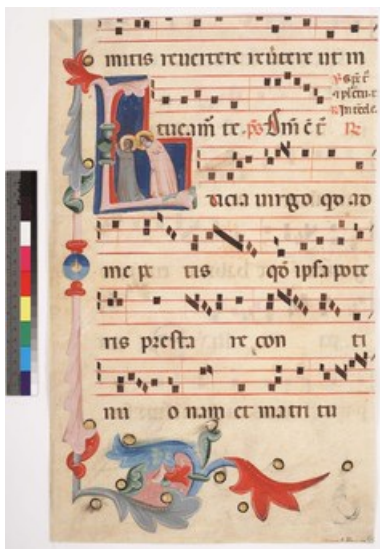 mitis reuertere reūtere ut in
tueam̄ te.
L ucia uirgo qd ad
me pe tis qd ipsa pote
ris presta re con ti
nu o nam et matri tu